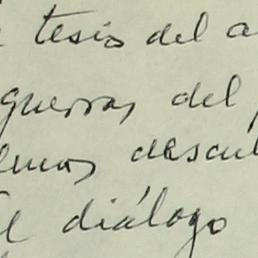 tesis del a
guerras del
emos descu
el diálogo